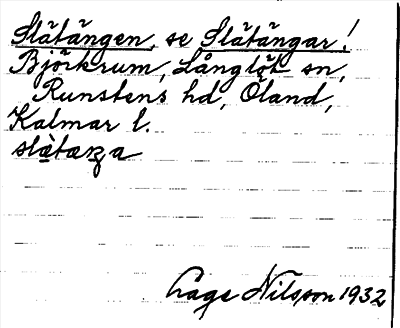 Slätängen, se Slätängar!
Björkrum, Långlöt sn,
Runstens hd, Öland,
Kalmar l.
Åage Nilsson 1932